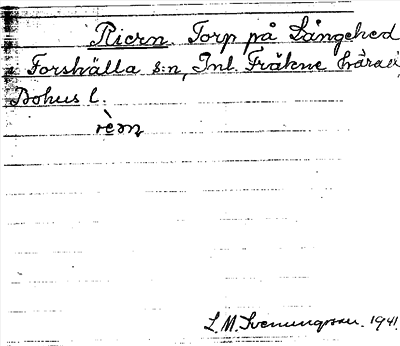 Riern. Torp på Långehed
i Forshälla s:n, Inl. Fräkne härad,
Bohus l.
rèm
L. M. Svenungsson. 1941.